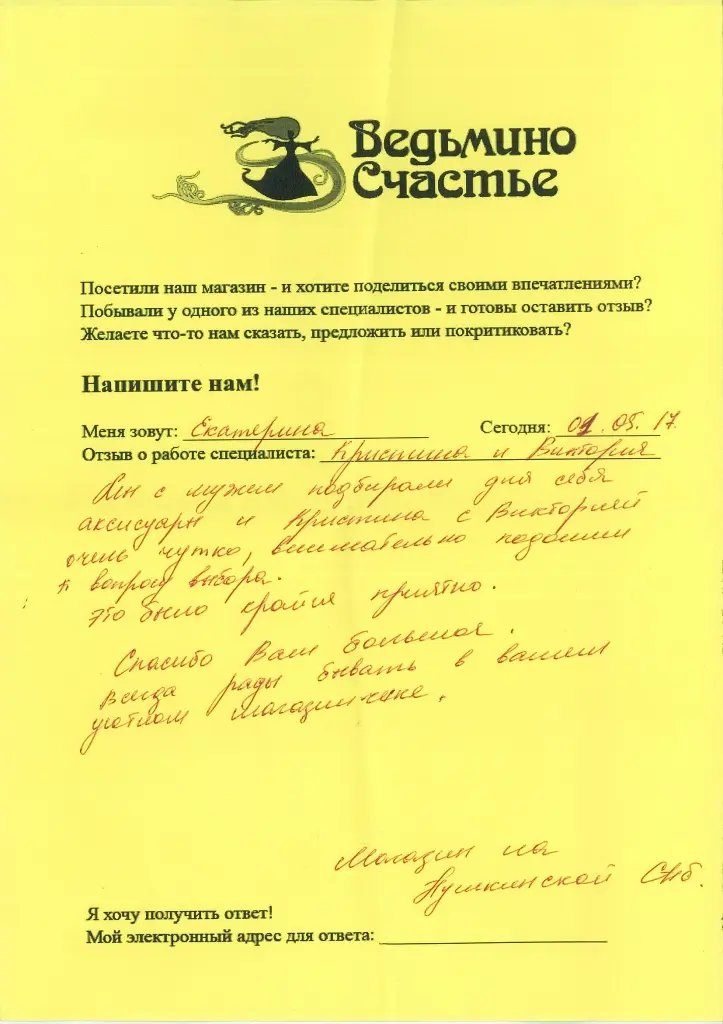 Ведьмино
Счастье
Посетили наш магазин - и хотите поделиться своими впечатлениями?
Побывали у одного из наших специалистов - и готовы оставить отзыв?
Желаете что-то нам сказать, предложить или покритиковать?
Напишите нам!
Меня зовут: Екатерина Сегодня: 01.05.17
Отзыв о работе специалиста: Кристина и Виктория
Мы с мужем подбирали для себя
аксесуары и Кристина с Викторией
очень чутко, внимательно подошли
к вопросу выбора.
Это было крайня приятно.
Спасибо Вам большое.
Всегда рады бывать в вашем
уютном магазинчике.
Магазин на
Пушкинской СПб.
Я хочу получить ответ!
Мой электронный адрес для ответа: